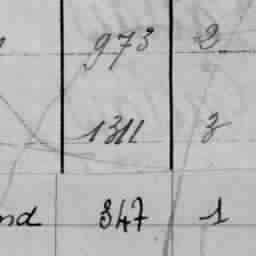 973 2
1311 3
nd 347 1